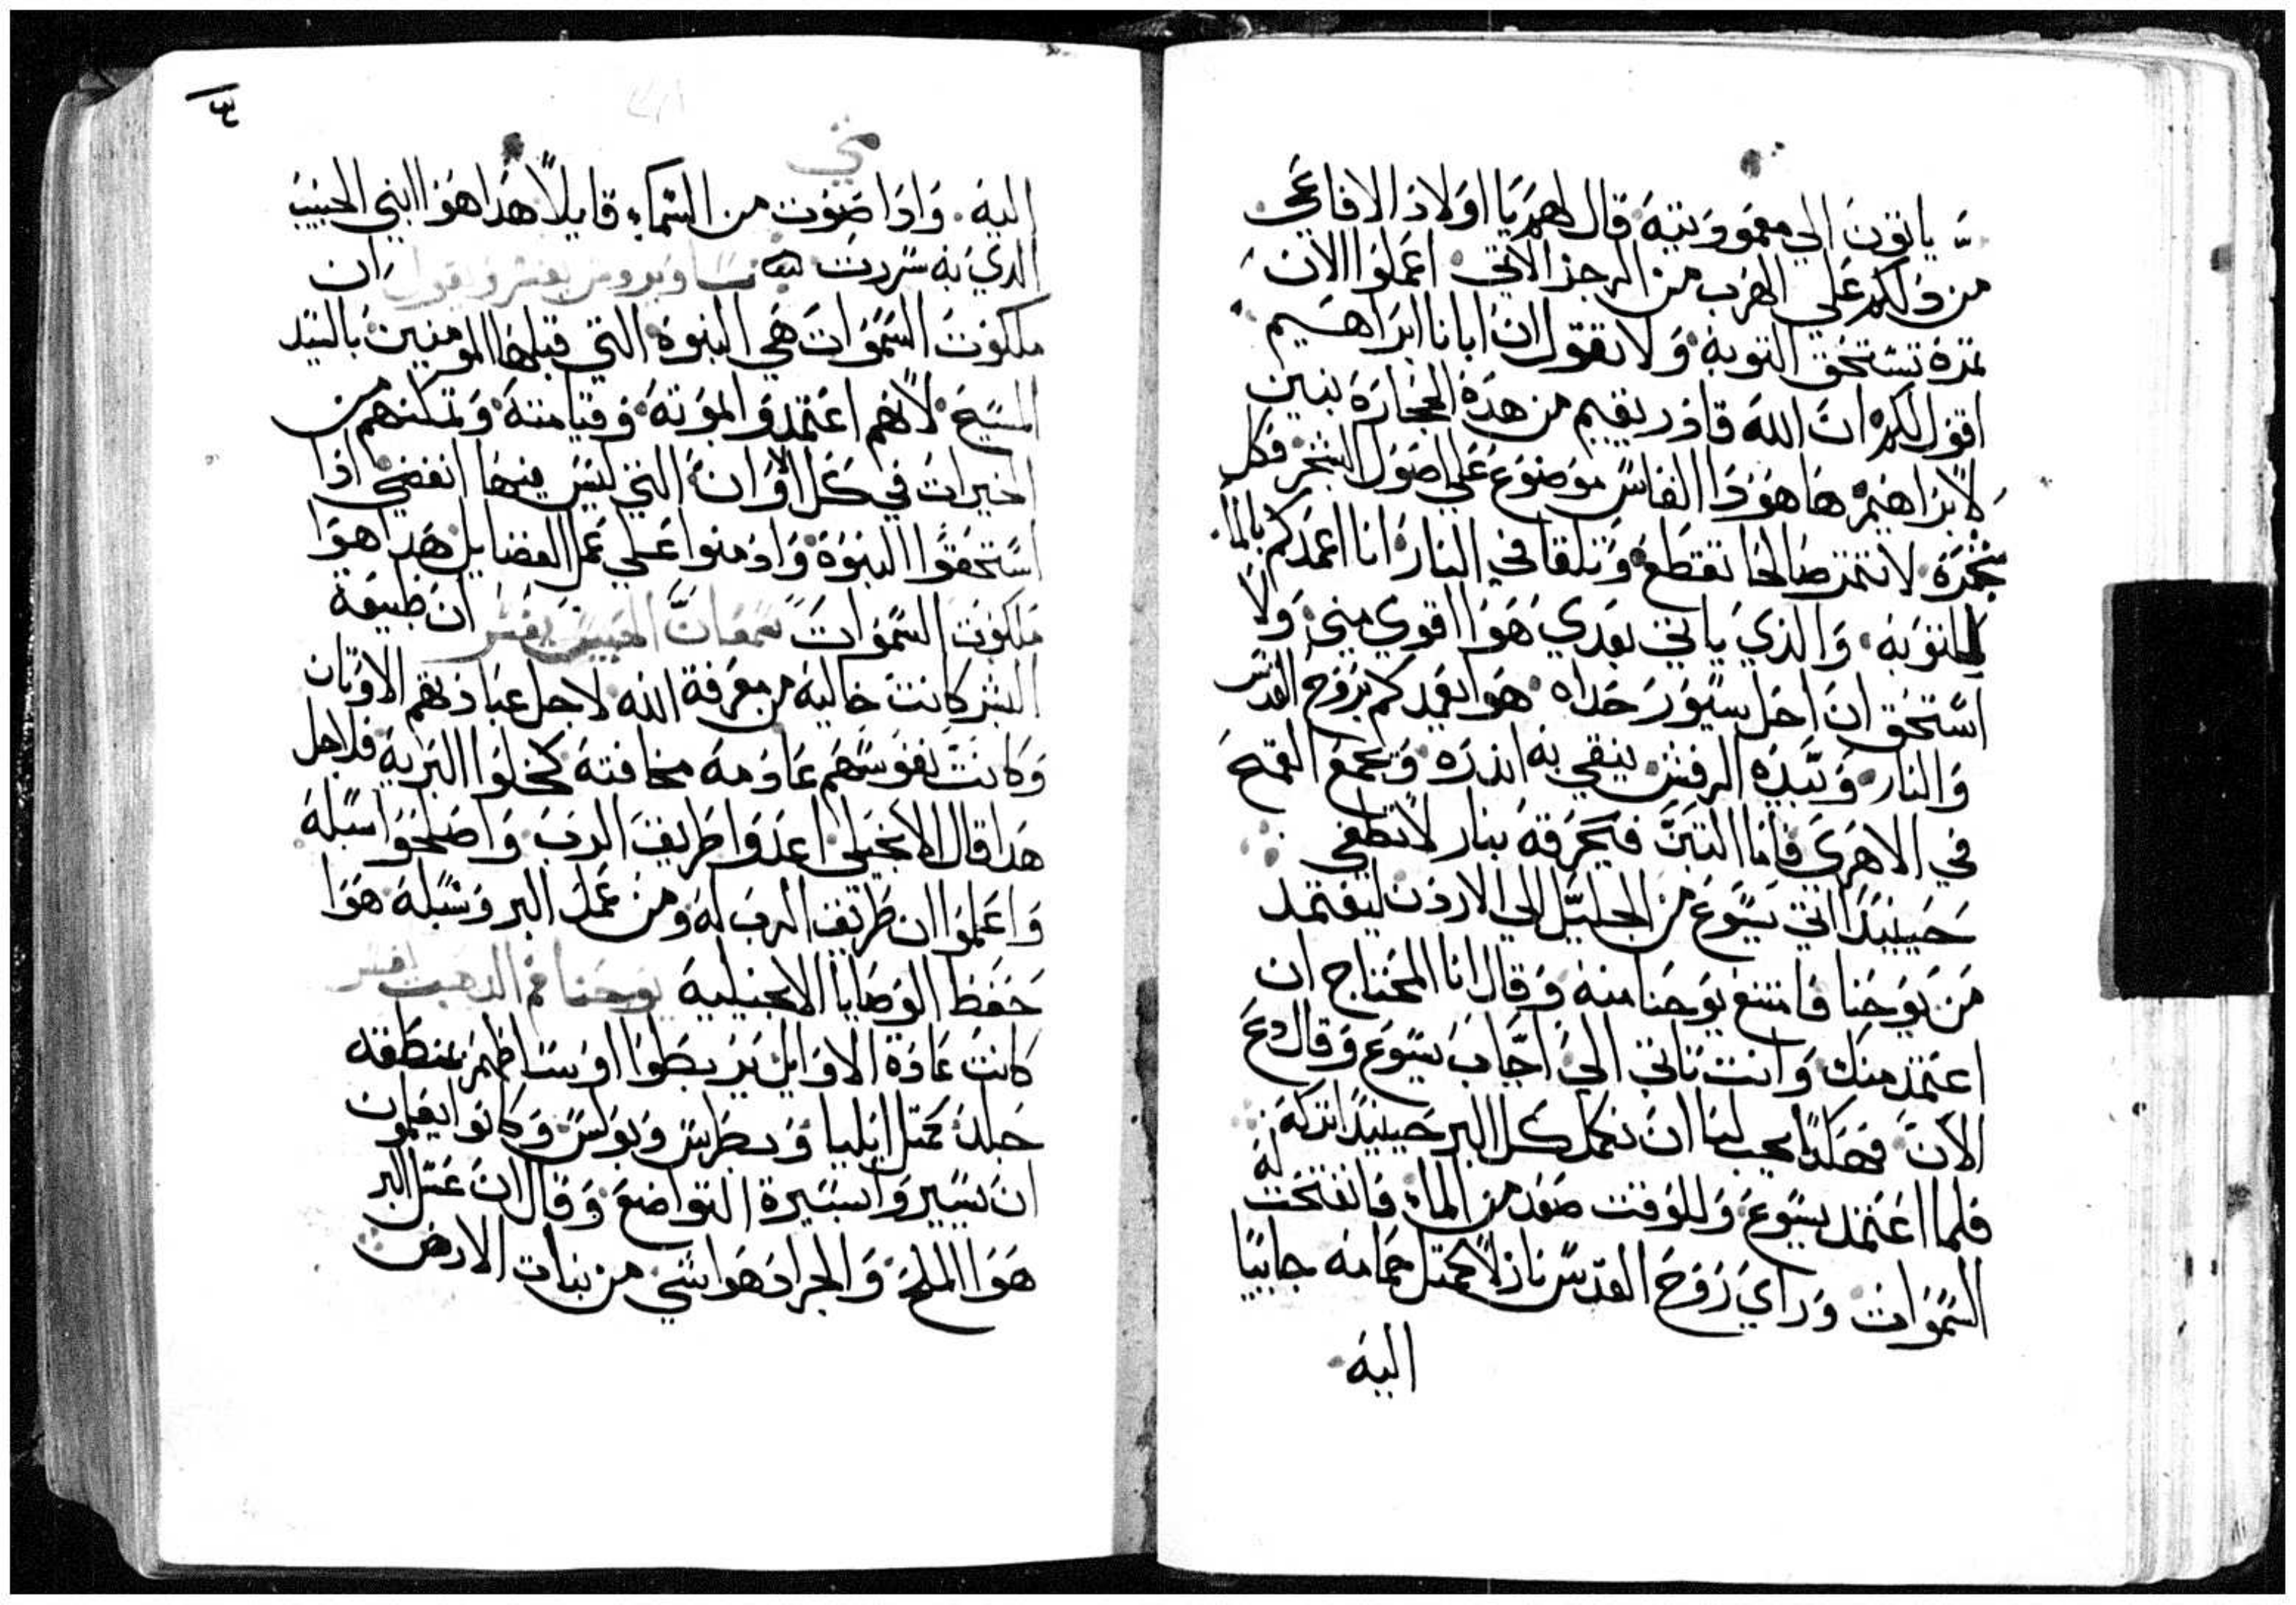 ياتون الي معموديته قال لهم يا اولاد الافاعي
من دلكم علي الهرب من الرجز الاتي اعملوا الان
ثمرة تستحق التوبه ولا تقول ان ابانا ابراهيم
اقول لكم ان الله قادر يقيم من هذه الحجارة بنين
لابراهيم ها هوذا الفاس موضوع علي اصول الشجر فكل
شجرة لا تثمر صالحا تقطع وتلقا في النار انا اعمدكم بالما
للتوبه والذي ياتي بعدي هوا اقوي مني ولا
استحق ان احل سيور حداه هوا يعمدكم بروح القدس
والنار وبيده الرفش ينقي به اندره ويجمع القمح
في الاهري فاما التبن فيحرقه بنار لا تطفي
حينيدا اتي يسوع من الجليل الي الاردن ليعتمد
من يوحنا فامتنع يوحنا منه وقال انا المحتاج ان
اعتمد منك وانت تاتي الي اجاب يسوع وقال دع
الان فهكدا يجب لنا ان نكمل كل البر حينيدا تركه
فلما اعتمد يسوع وللوقت صعد من الما فانفتحت له
السموات وراي روح القدس نازلا كمثل حمامه جاييا
اليه
٣
متي
اليه وادا صوت من السماء قايلا هدا هوا ابني الحبيب
الدي به سررت ويقول ان
ملكوت السموات هي البنوة التي قبلها المومنين بالسيد
المسيح لانهم اعتمدوا لموته وقيامته وتمكنهم من
الخيرات في كل الاوان التي ليس فيها انقضي ادا
استحقوا البنوة وادمنوا علي عمل الفضايل هدا هوا
ملكوت السموات سمعان الحبيس يفسر ان طبيعة
البشر كانت خاليه من معرفة الله لاجل عبادتهم الاوتان
وكانت نفوسهم عادمة مخافته كخلوا البريه فلاجل
هدا قال الانجيلي اعدوا طريق الرب واصلحوا سبله
واعلموا ان طريق الرب له ومن عمل البر وسبله هوا
حفظ الوصايا الانجيليه يوحنا فم الدهب افسر
كانت عادة الاوايل يربطوا اوساطهم بمنطقه
جلد كمتل ايليا وبطرس وبولس وكانوا يعلمون
ان يسيروا بسيرة التواضع وقال ان عسل البر
هوا الملح والجراد هوا شي من نبات الارض